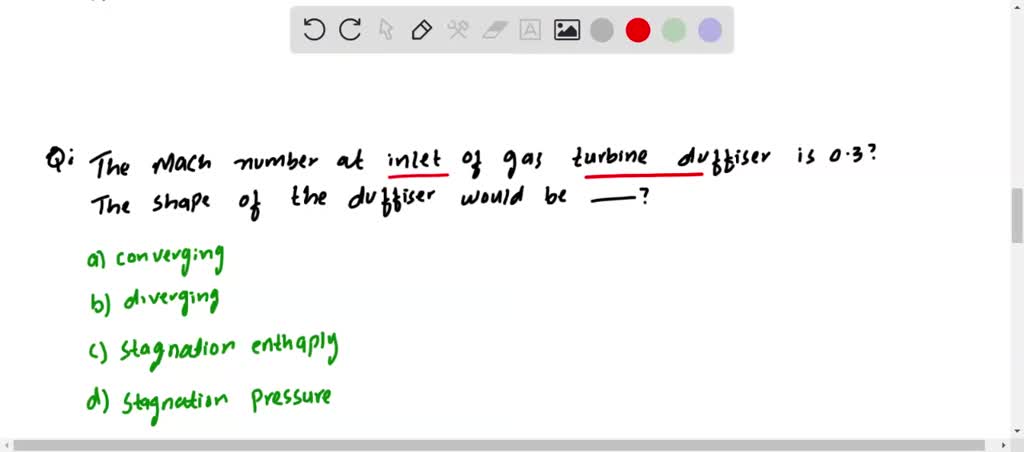 Qi The Mach number at inlet of gas turbine duffiser is 0.3?
The shape of the duffiser would be —?
a) converging
b) diverging
c) stagnation enthaply
d) stagnation pressure